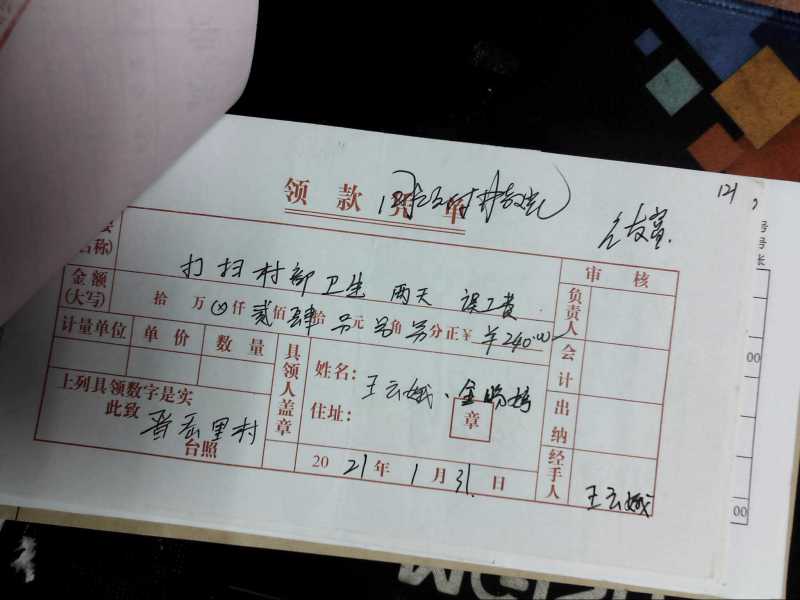 领款凭单
121
名称)
打扫村部卫生 两天 误工费
审核
金额
(大写)
拾 万 ⊗仟 贰佰 肆拾 另元 另角 另分正¥ ¥240.00
负责人
计量单位 单价 数量
具领人盖章
姓名: 王云娥、金
会计
住址:
章
出纳
上列具领数字是实
此致 晋岳里村
台照
2021年 1月 31日
经手人 王云娥
号
号
张
00
00